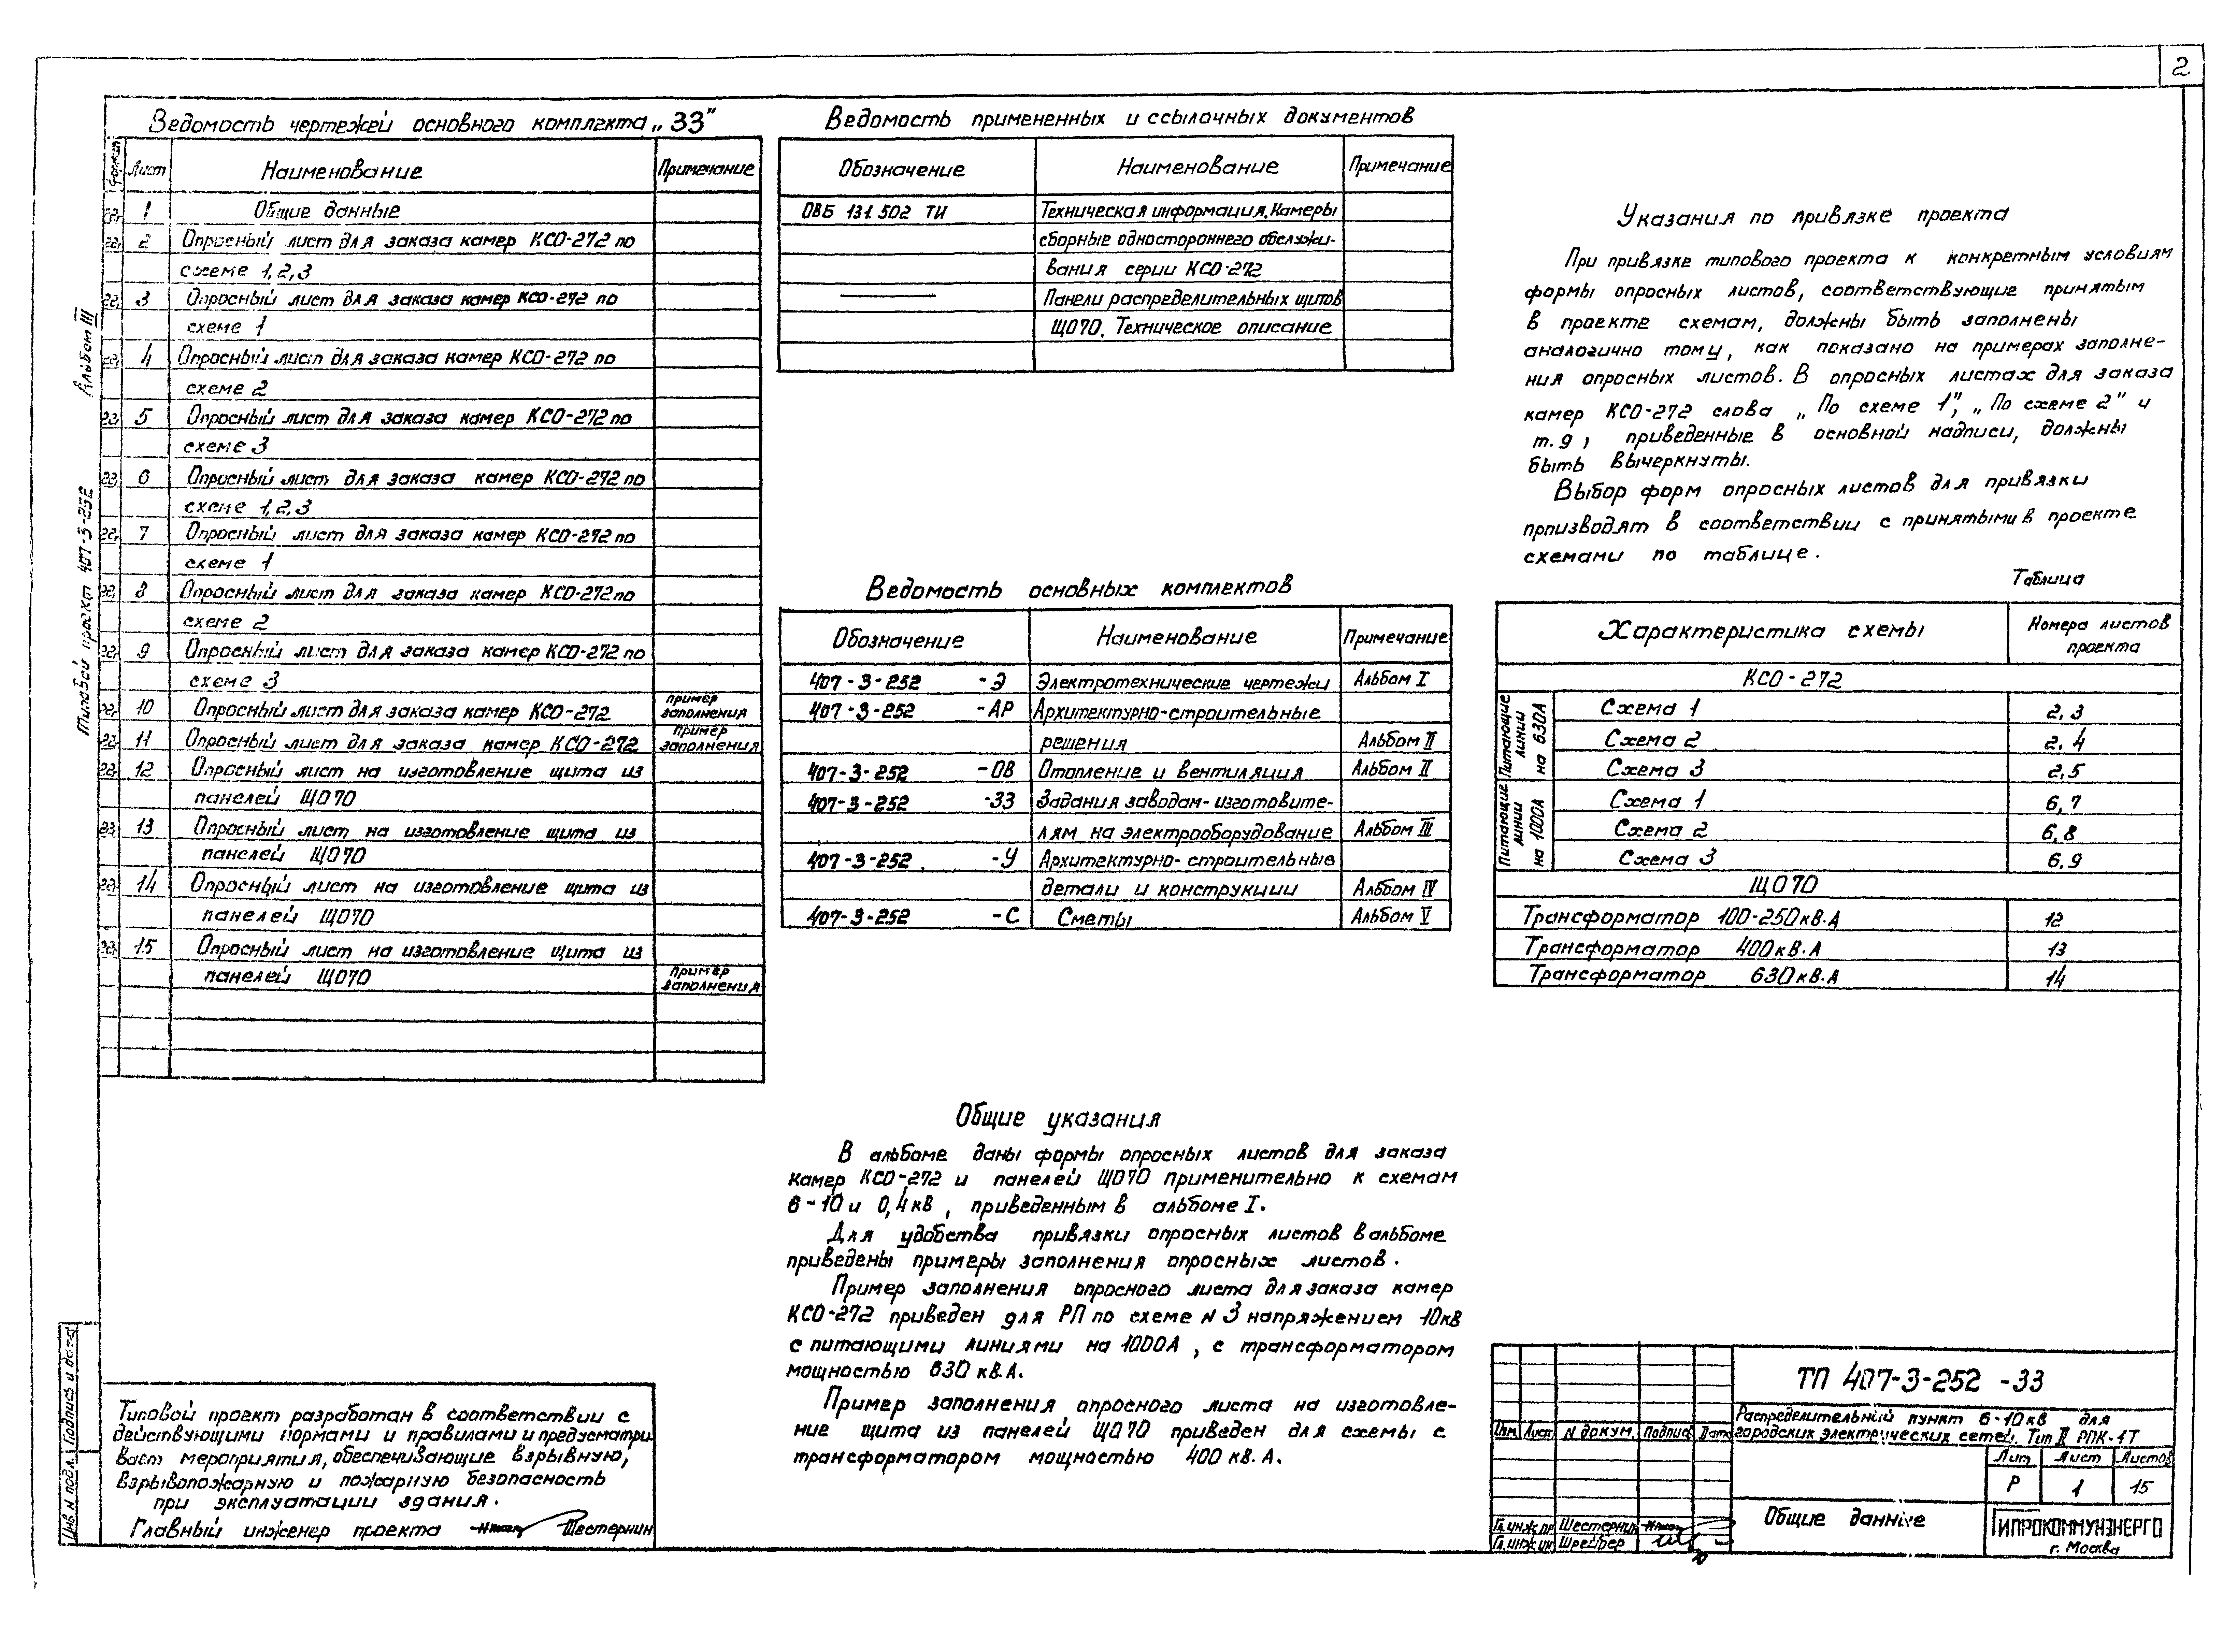 2
Альбом III
Типовой проект 407-3-252
Ведомость чертежей основного комплекта „ЗЗ"
Формат Лист Наименование Примечание
22г 1 Общие данные
22г 2 Опросный лист для заказа камер КСО-272 по
схеме 1,2,3
22г 3 Опросный лист для заказа камер КСО-272 по
схеме 1
22г 4 Опросный лист для заказа камер КСО-272 по
схеме 2
22г 5 Опросный лист для заказа камер КСО-272 по
схеме 3
22г 6 Опросный лист для заказа камер КСО-272 по
схеме 1,2,3
22г 7 Опросный лист для заказа камер КСО-272 по
схеме 1
22г 8 Опросный лист для заказа камер КСО-272 по
схеме 2
22г 9 Опросный лист для заказа камер КСО-272 по
схеме 3
22г 10 Опросный лист для заказа камер КСО-272 пример заполнения
22г 11 Опросный лист для заказа камер КСО-272 пример заполнения
22г 12 Опросный лист на изготовление щита из
панелей ЩО70
22г 13 Опросный лист на изготовление щита из
панелей ЩО70
22г 14 Опросный лист на изготовление щита из
панелей ЩО70
22г 15 Опросный лист на изготовление щита из
панелей ЩО70 пример заполнения
Типовой проект разработан в соответствии с
действующими нормами и правилами и предусматри-
вает мероприятия, обеспечивающие взрывную,
взрывопожарную и пожарную безопасность
при эксплуатации здания.
Главный инженер проекта Шестернин
Инв N подл. Подпись и дата
Ведомость примененных и ссылочных документов
Обозначение Наименование Примечание
ОВБ 131 502 ТИ Техническая информация. Камеры
сборные одностороннего обслужи-
вания серии КСО-272
Панели распределительных щитов
ЩО70. Техническое описание
Ведомость основных комплектов
Обозначение Наименование Примечание
407-3-252 -Э Электротехнические чертежи Альбом I
407-3-252 -АР Архитектурно-строительные
решения Альбом II
407-3-252 -ОВ Отопление и вентиляция Альбом II
407-3-252 -ЗЗ Задания заводам-изготовите-
лям на электрооборудование Альбом III
407-3-252 -У Архитектурно-строительные
детали и конструкции Альбом IV
407-3-252 -С Сметы Альбом V
Общие указания
В альбоме даны формы опросных листов для заказа
камер КСО-272 и панелей ЩО70 применительно к схемам
6-10 и 0,4 кВ, приведенным в альбоме I.
Для удобства привязки опросных листов в альбоме
приведены примеры заполнения опросных листов.
Пример заполнения опросного листа для заказа камер
КСО-272 приведен для РП по схеме N 3 напряжением 10кВ
с питающими линиями на 1000А, с трансформатором
мощностью 630 кВ.А.
Пример заполнения опросного листа на изготовле-
ние щита из панелей ЩО70 приведен для схемы с
трансформатором мощностью 400 кВ.А.
Указания по привязке проекта
При привязке типового проекта к конкретным условиям
формы опросных листов, соответствующие принятым
в проекте схемам, должны быть заполнены
аналогично тому, как показано на примерах заполне-
ния опросных листов. В опросных листах для заказа
камер КСО-272 слова „По схеме 1", „По схеме 2" и
т.д, приведенные в основной надписи, должны
быть вычеркнуты.
Выбор форм опросных листов для привязки
производят в соответствии с принятыми в проекте
схемами по таблице.
Таблица
Характеристика схемы Номера листов проекта
КСО-272
Питающие линии на 630А
Схема 1 2,3
Схема 2 2,4
Схема 3 2,5
Питающие линии на 1000А
Схема 1 6,7
Схема 2 6,8
Схема 3 6,9
ЩО70
Трансформатор 100-250кВ.А 12
Трансформатор 400кВ.А 13
Трансформатор 630кВ.А 14
ТП 407-3-252 -ЗЗ
Распределительный пункт 6-10кВ для
городских электрических сетей. Тип II РПК-1Т
Изм. Лист N докум. Подпись Дата
Лит Лист Листов
Р 1 15
Общие данные
Гл.инж.пр Шестернин
Гл.инж.ин Шрейбер
ГИПРОКОММУНЭНЕРГО
г. Москва